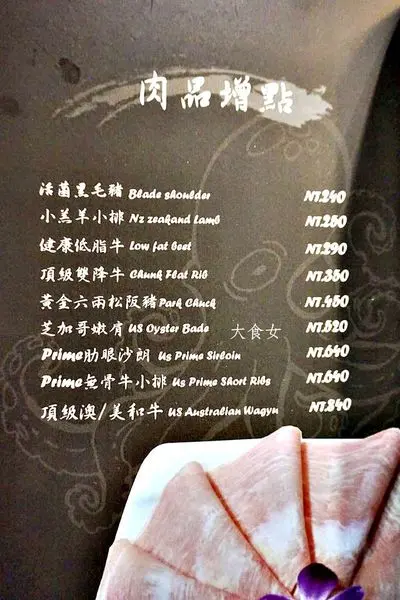 肉品增點
活菌黑毛豬 Blade shoulder NT.240
小羔羊小排 Nz zeakand Lamb NT.250
健康低脂牛 Low fat beet NT.290
頂級雙降牛 Chunk Flat Rib NT.350
黃金六兩松阪豬 Park Chuck NT.450
芝加哥嫩肩 US Oyster Bade NT.520
大食女
Prime肋眼沙朗 Us Prime Sirloin NT.640
Prime無骨牛小排 Us Prime Short Ribs NT.640
頂級澳/美和牛 US Australian Wagyu NT.840